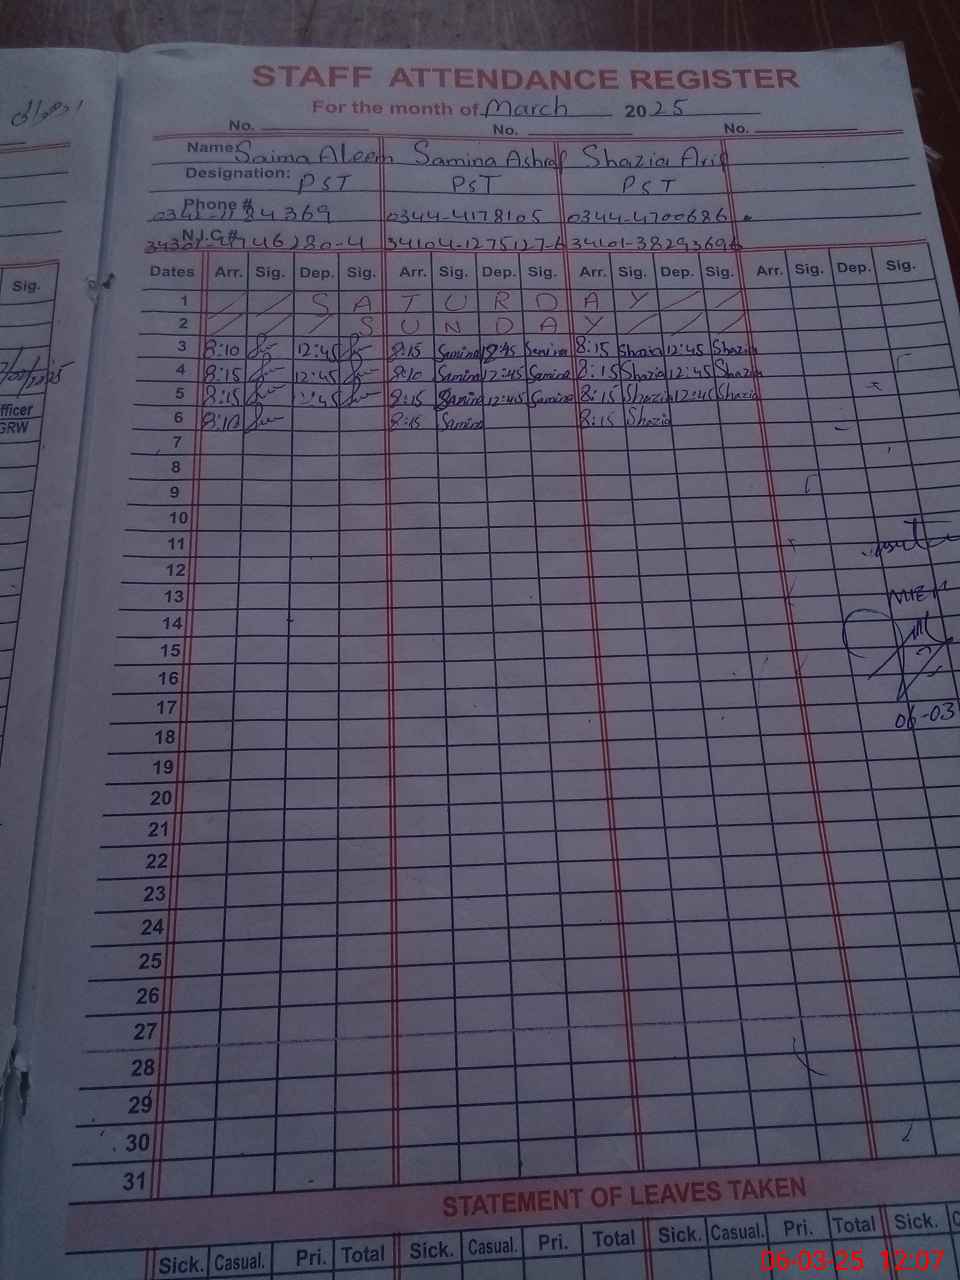 STAFF ATTENDANCE REGISTER
For the month of March 2025
No. No. No.
Name: Saima Aleem Samina Ashraf Shazia Arif
Designation: PST PST PST
Phone # 0344-4178105 0344-4700686
N.I.C.# 34104-1275127-6
Sig. Dates Arr. Sig. Dep. Sig. Arr. Sig. Dep. Sig. Arr. Sig. Dep. Sig. Arr. Sig. Dep. Sig.
1 SATURDAY
2 SUNDAY
3 8:10 12:45 8:15 Samina 12:45 Samina 8:15 Shazia 12:45 Shazia
4 8:15 12:45 8:10 Samina 12:45 Samina 8:15 Shazia 12:45 Shazia
5 8:15 12:45 8:15 Samina 12:45 Samina 8:15 Shazia 12:45 Shazia
6 8:10 8:15 Samina 8:15 Shazia
7
8
9
10
11
12
13
14
15
16
17
06-03
18
19
20
21
22
23
24
25
26
27
28
29
30
31
STATEMENT OF LEAVES TAKEN
Sick. Casual. Pri. Total Sick. Casual. Pri. Total Sick. Casual. Pri. Total Sick.
06-03-25 12:07